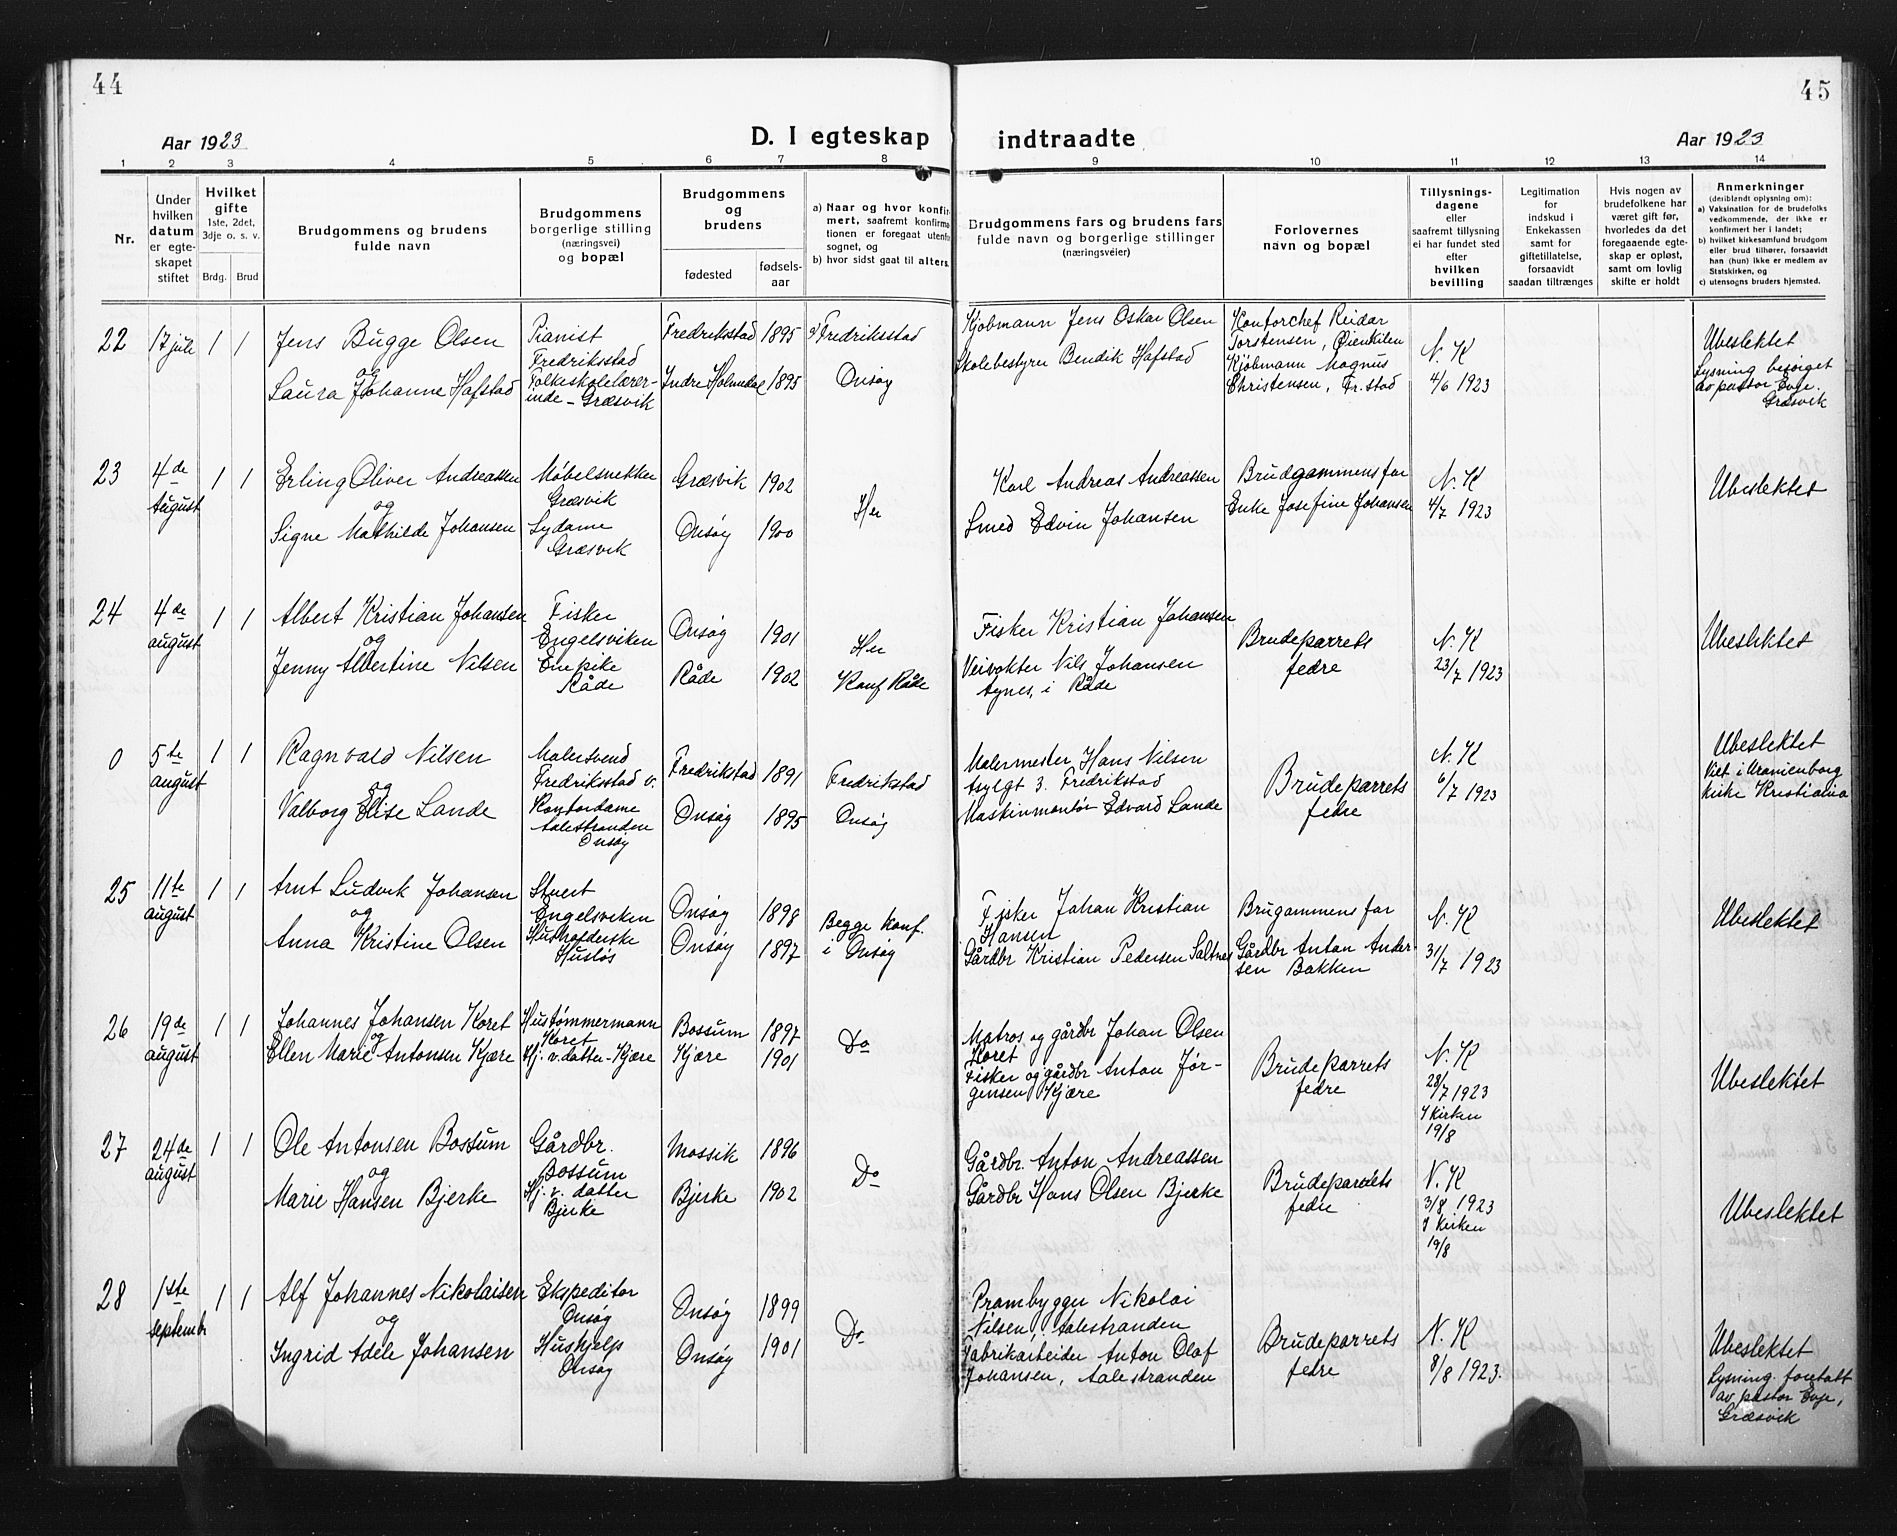 44
45
Aar 1923
D. I egteskap indtraadte
Aar 1923
1 2 3 4 5 6 7 8 9 10 11 12 13 14
Nr.
Under
hvilken
datum
er egte-
skapet
stiftet
Hvilket
gifte
1ste, 2det,
3dje o. s. v.
Brdg. Brud
Brudgommens og brudens
fulde navn
Brudgommens
borgerlige stilling
(næringsvei)
og bopæl
Brudgommens
og
brudens
fødested
fødsels-
aar
a) Naar og hvor konfir-
mert, saafremt konfirma-
tionen er foregaat utenfor
sognet, og
b) hvor sidst gaat til alters.
Brudgommens fars og brudens fars
fulde navn og borgerlige stillinger
(næringsveier)
Forlovernes
navn og bopæl
Tillysnings-
dagene
eller
saafremt tillysning
ei har fundet sted
efter
hvilken
bevilling
Legitimation
for
indskud i
Enkekassen
samt for
giftetillatelse,
forsaavidt
saadan tiltrænges
Hvis nogen av
brudefolkene har
været gift før,
hvorledes da det
foregaaende egte-
skap er opløst,
samt om lovlig
skifte er holdt
Anmerkninger
(deriblandt oplysning om):
a) Vaksination for de brudefolks
vedkommende, der ikke er
konfirmert her i landet;
b) hvilket kirkesamfund brudgom
eller brud tilhører, forsaavidt
han (hun) ikke er medlem av
Statskirken, og
c) utensogns bruders hjemsted.
22
17 juli
1 1
Jens Bugge Olsen
og
Laura Johanne Hafstad
Pianist
Fredriksstad
Folkeskolelærer-
inde - Græsvik
Fredrikstad 1895
Indre Holmedal 1895
Fredriksstad
Onsøy
Kjøbmann Jens Oskar Olsen
Skolebestyrer Bendik Hafstad
Kontorchef Reidar
Torstensen, Øienkilen
Kjøbmann Magnus
Christensen, Fr.stad
N. K
4/6 1923
Ubeslektet
Lysning besørget
av pastor Evje.
Græsvik
23
4de
August
1 1
Erling Oliver Andreassen
og
Signe Mathilde Johansen
Møbelsnekker
Græsvik
Sydame
Græsvik
Græsvik 1902
Onsøy 1900
Her
Karl Andreas Andreassen
Smed Edvin Johansen
Brudgommens far
Enke Josefine Johansen
N. K
4/7 1923
Ubeslektet
24
4de
august
1 1
Albert Kristian Johansen
og
Jenny Albertine Nilsen
Fisker
Engelsviken
Enepike
Råde
Onsøy 1901
Råde 1902
Her
Konf Råde
Fisker Kristian Johansen
Veivokter Nils Johansen
Aynes, i Råde
Brudeparrets
fedre
N. K
23/7 1923
Ubeslektet
0
5te
august
1 1
Ragnvald Nilsen
og
Valborg Elise Lande
Malersvend
Fredriksstad v.
Kontordame
Aalestranden
Onsøy
Fredrikstad 1891
Onsøy 1895
Fredrikstad
Onsøy
Malermester Hans Nilsen
Asylgt 3. Fredrikstad
Maskinmontør Edvard Lande
Brudeparrets
fedre
N. K
6/7 1923
Ubeslektet
Viet i Uranienborg
kirke Kristiania
25
11te
august
1 1
Arnt Ludvik Johansen
og
Anna Kristine Olsen
Stuert
Engelsviken
Husholderske
Husløs
Onsøy 1898
Onsøy 1897
Begge konf.
i Onsøy
Fisker Johan Kristian
Hansen
Gårdbr Kristian Pedersen Saltnes
Brugommens far
Gårdbr Anton Ander-
sen Bakken
N. K
31/7 1923
Ubeslektet
26
19de
august
1 1
Johannes Johansen Koret
og
Ellen Marie Antonsen Kjære
Hustømmermann
Koret
Hj. v. datter - Kjære
Bossum 1897
Kjære 1901
Do
Matros og gårdbr Johan Olsen
Koret
Fisker og gårdbr Anton Jør-
gensen Kjære
Brudeparrets
fedre
N. K
28/7 1923
I kirken
19/8
Ubeslektet
27
24de
august
1 1
Ole Antonsen Bossum
og
Marie Hansen Bjerke
Gårdbr.
Bossum
Hj. v. datter
Bjerke
Mossik 1896
Bjerke 1902
Do
Gårdbr. Anton Andreassen
Gårdbr Hans Olsen Bjerke
Brudeparrets
fedre
N. K
3/8 1923
I kirken
19/8
Ubeslektet
28
1ste
septembr
1 1
Alf Johannes Nikolaisen
og
Ingrid Adele Johansen
Ekspeditør
Onsøy
Hushjelp
Onsøy
Onsøy 1899
Onsøy 1901
Do
Prambygger Nikolai
Nilsen, Aalestranden
Fabrikarbeider Anton Olaf
Johansen, Aalestranden
Brudeparrets
fedre
N. K
8/8 1923.
Ubeslektet
Lysning foretatt
av pastor Evje,
Græsvik